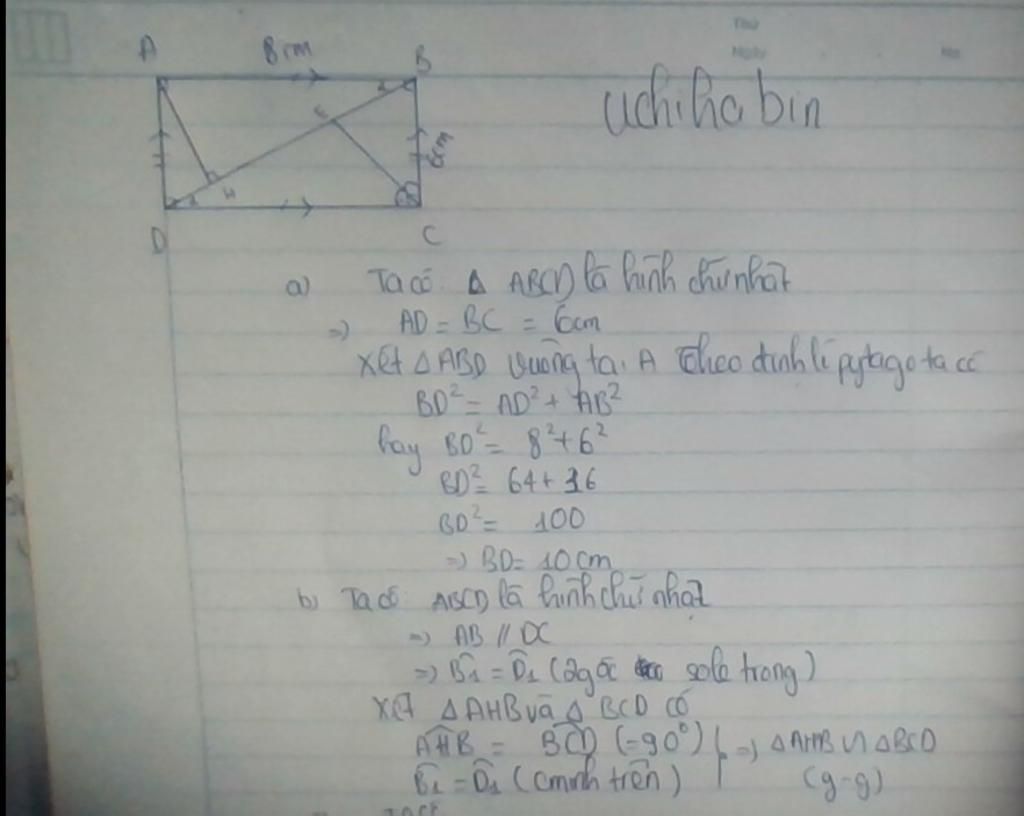 Thứ
Ngày
No.
A 8cm B
uchiha bin
E
6cm
H
D C
a) Ta có: Δ ABCD là hình chữ nhật
=> AD = BC = 6cm
Xét Δ ABD vuông tại A theo định lí pytago ta có
BD² = AD² + AB²
hay BD² = 8² + 6²
BD² = 64 + 36
BD² = 100
=> BD = 10cm
b) Ta có: ABCD là hình chữ nhật
=> AB // DC
=> B̂1 = D̂1 (2 góc sole trong)
Xét Δ AHB và Δ BCD có
AHB = BCD (=90⁰) } => Δ AHB ∽ Δ BCD
B̂1 = D̂1 (cminh trên) (g-g)